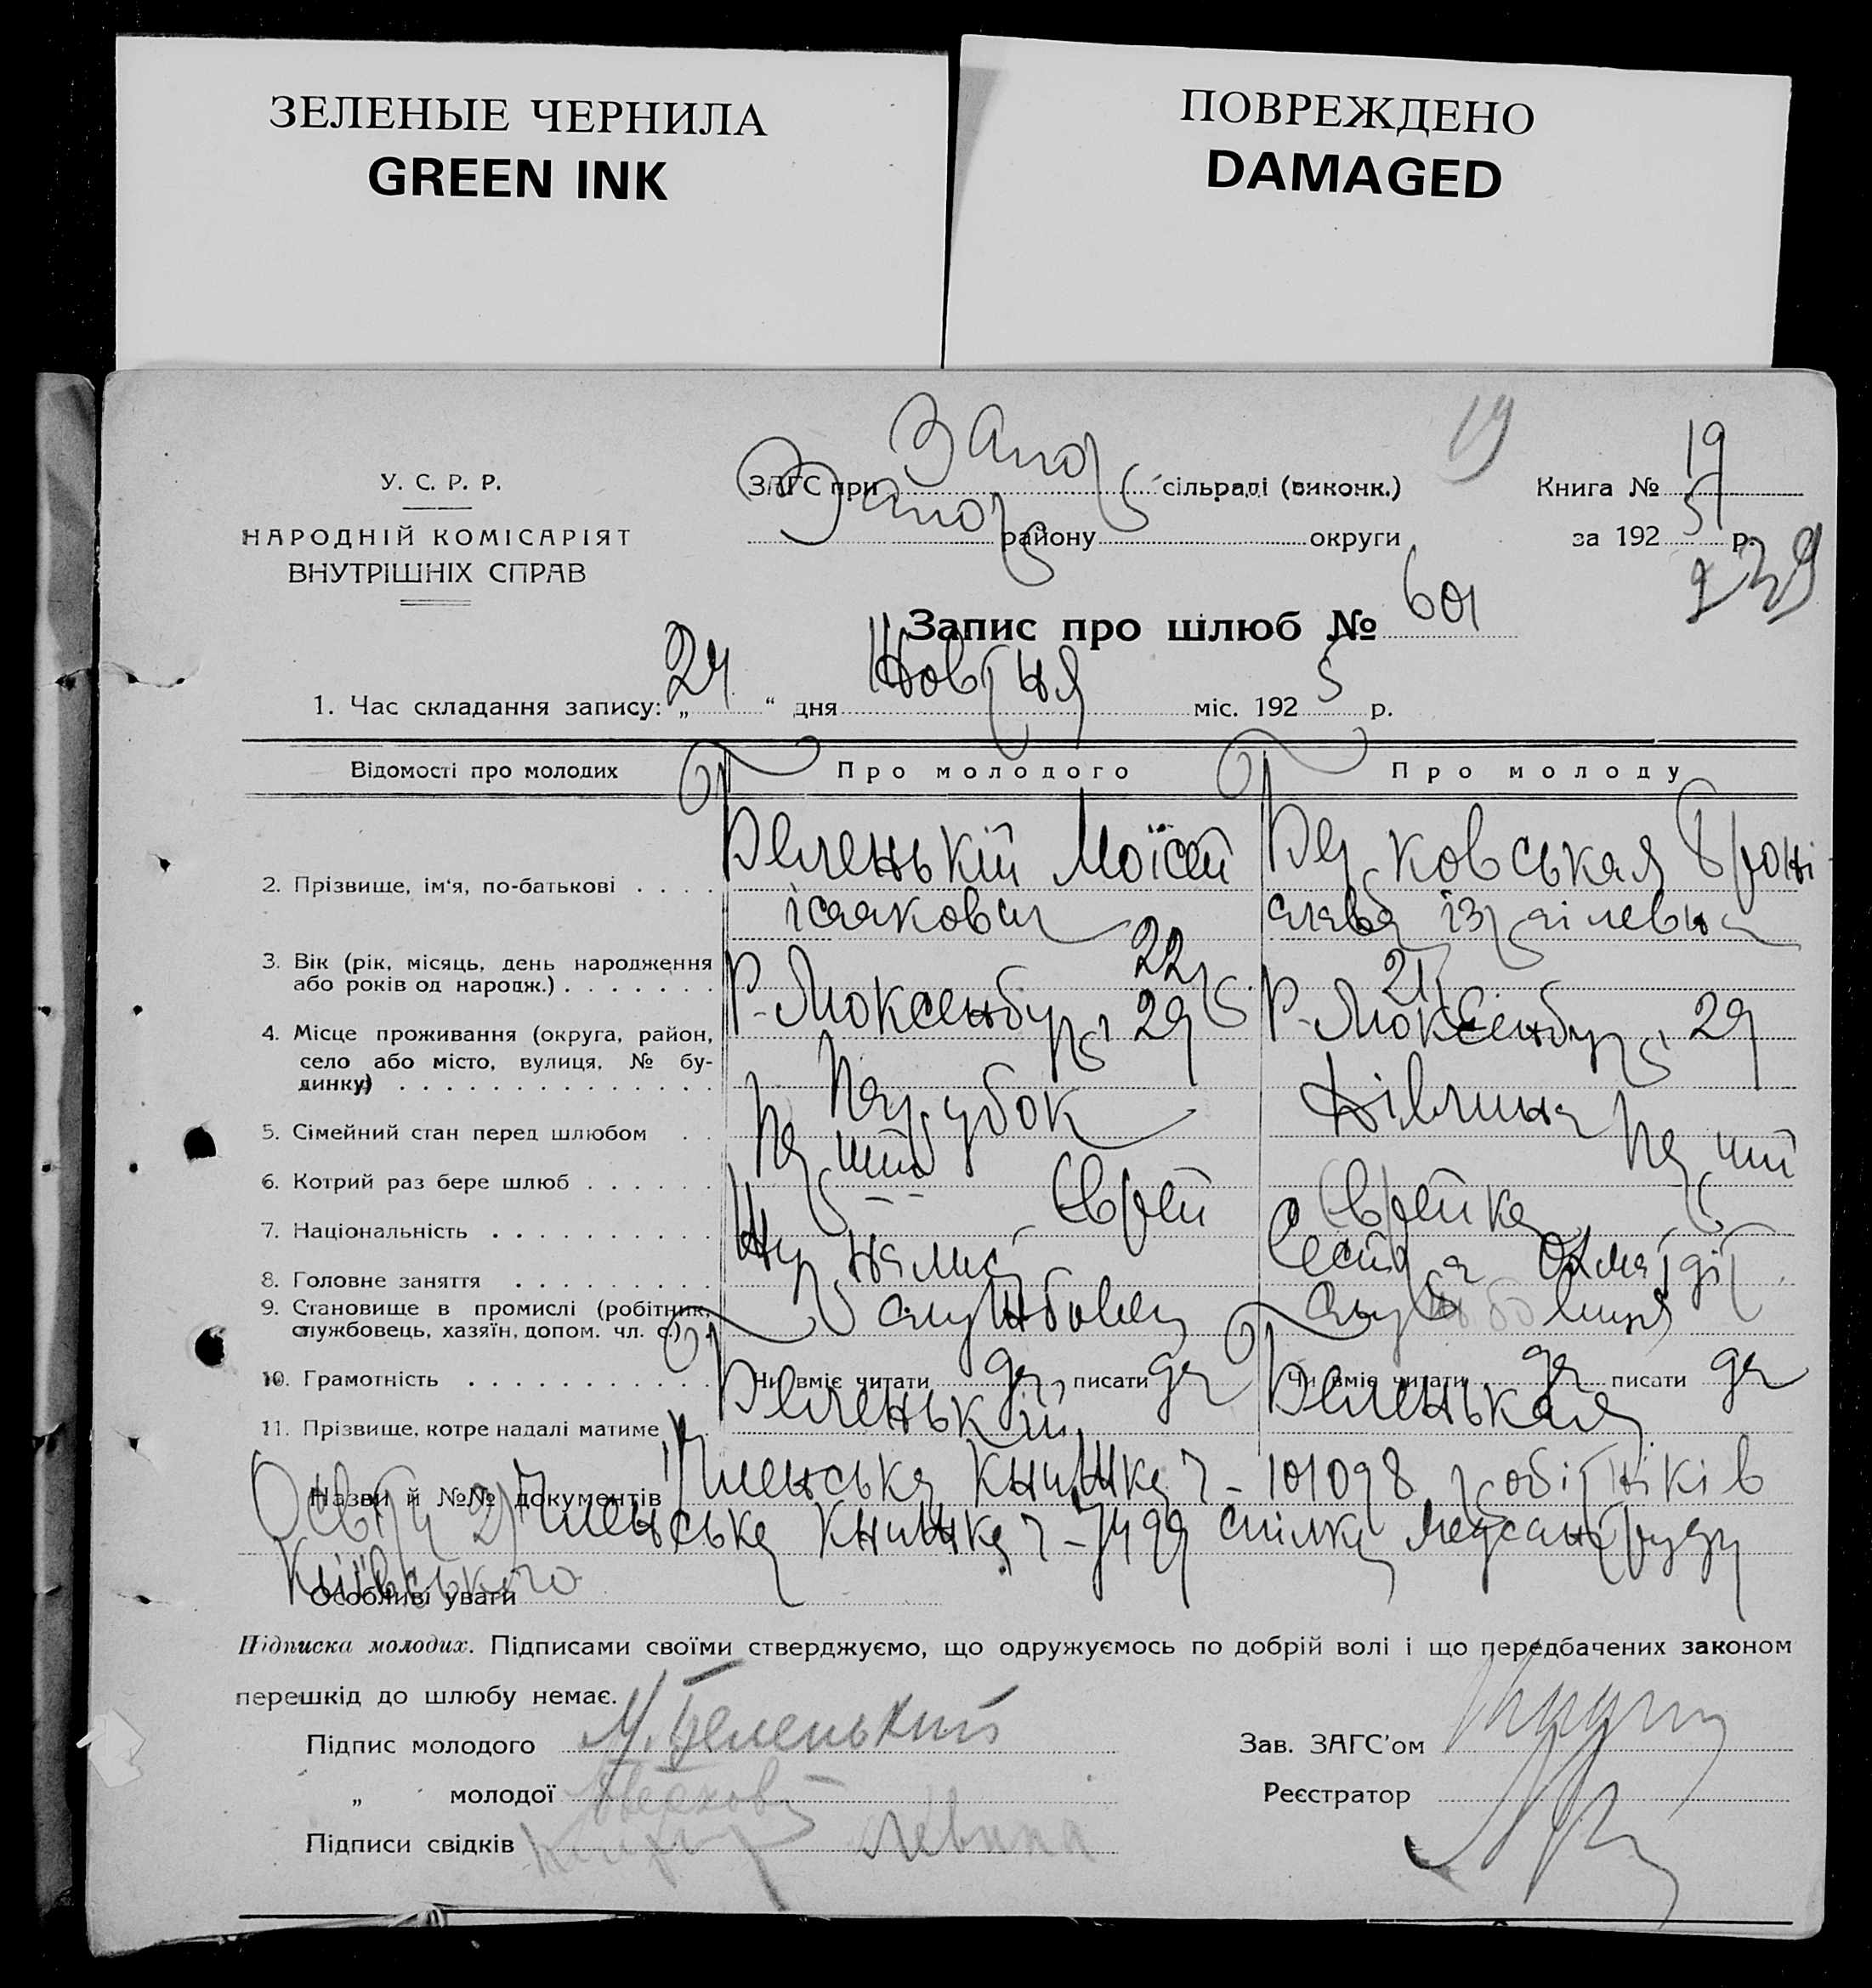 ЗЕЛЕНЫЕ ЧЕРНИЛА
GREEN INK
ПОВРЕЖДЕНО
DAMAGED
19
У. С. Р. Р.
НАРОДНІЙ КОМІСАРІЯТ
ВНУТРІШНІХ СПРАВ
ЗАГС при Запор сільраді (виконк.)
Запор району округи
Книга № 19
за 1925 р.
239
Запис про шлюб № 601
1. Час складання запису: „24“ дня Жовтня міс. 1925 р.
Відомості про молодих Про молодого Про молоду
2. Прізвище, ім'я, по-батькові Беленькій Моїсей Ісаакович Берковськая Броніслава Ізраілевна
3. Вік (рік, місяць, день народження
або років од народж.) 22 р 21 р
4. Місце проживання (округа, район,
село або місто, вулиця, № бу-
динку) Р. Люксенбург 29 Р. Люксенбург 29
5. Сімейний стан перед шлюбом Парубок Дівчина
6. Котрий раз бере шлюб Перший Перший
7. Національність Єврей Єврейка
8. Головне заняття Журналіст Сестра Охматдіт
9. Становище в промислі (робітник,
службовець, хазяїн, допом. чл. с.) службовец службовиця
10. Грамотність Чи вміє читати да писати да Чи вміє читати да писати да
11. Прізвище, котре надалі матиме Беленькій Беленькая
Назви й №№ документів 1) Членська книжка ч - 101098 робітніків
Освіти 2) Членська книжка ч - 7499 спілки Медсантруду
Київського
Особливі уваги
Підписка молодих. Підписами своїми стверджуємо, що одружуємось по добрій волі і що передбачених законом
перешкід до шлюбу немає.
Підпис молодого М. Беленький
„ молодої
Підписи свідків Левина
Зав. ЗАГС'ом
Реєстратор